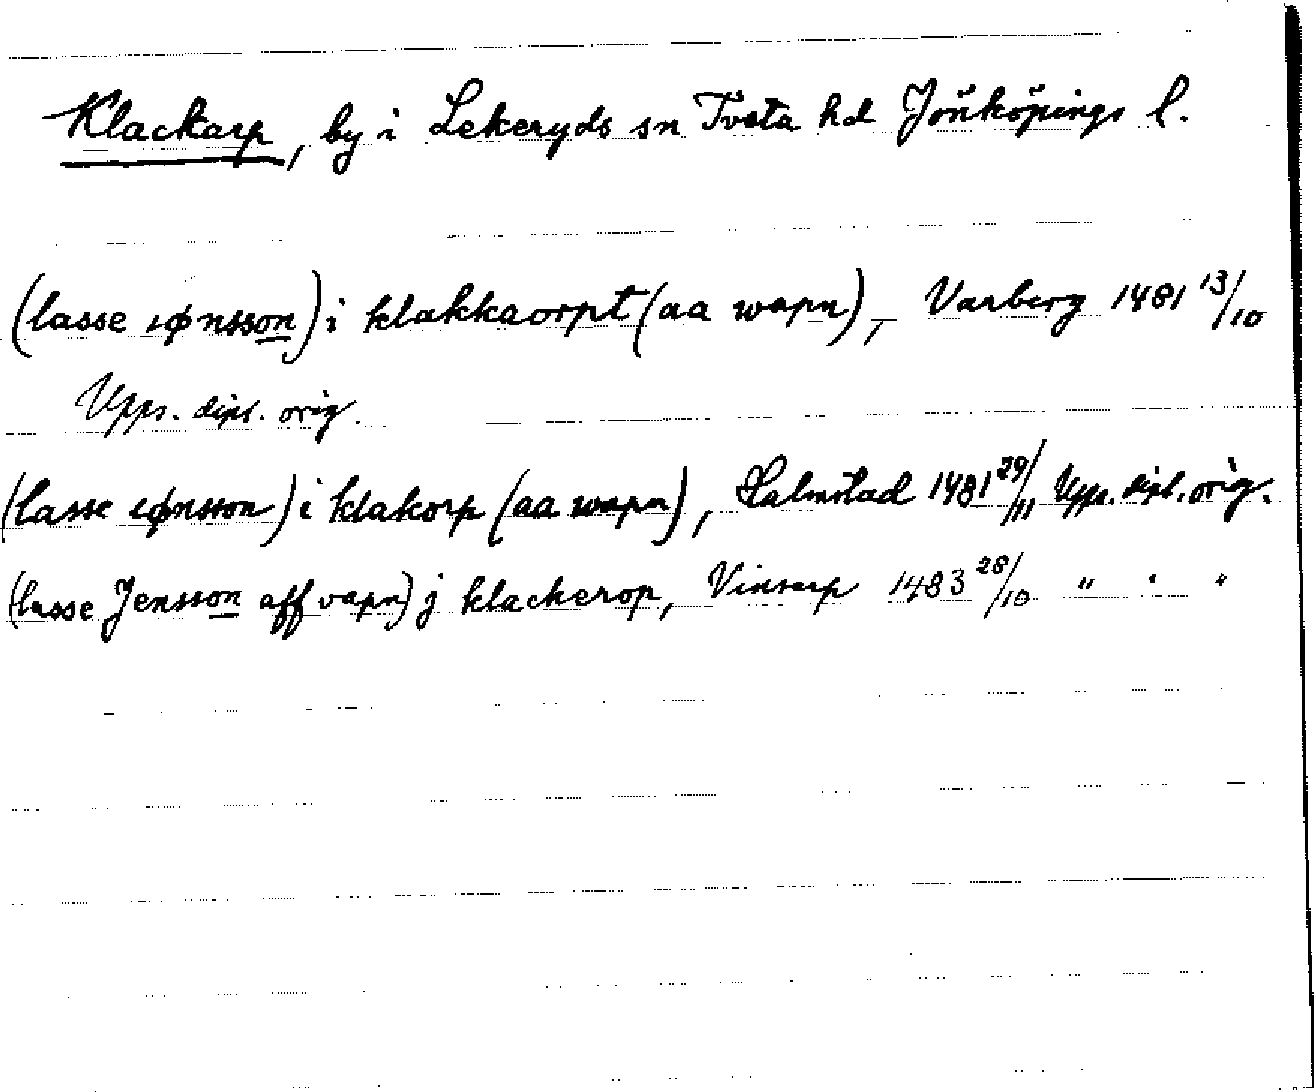 Klackarp, by i Lekeryds sn Tveta hd Jönköpings l.
(lasse iønsson) i klakkaorpt (aa wapn), Varberg 1481 13/10
Upps. dipl. orig.
(lasse iønsson) i klakorp (aa wapn), Halmstad 1481 29/11 Upps. dipl. orig.
(lasse Jensson aff vapn) j klackerop, Vinsarp 1483 28/10 " " "